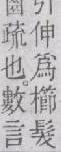 引伸爲櫛髮
疏也。數言